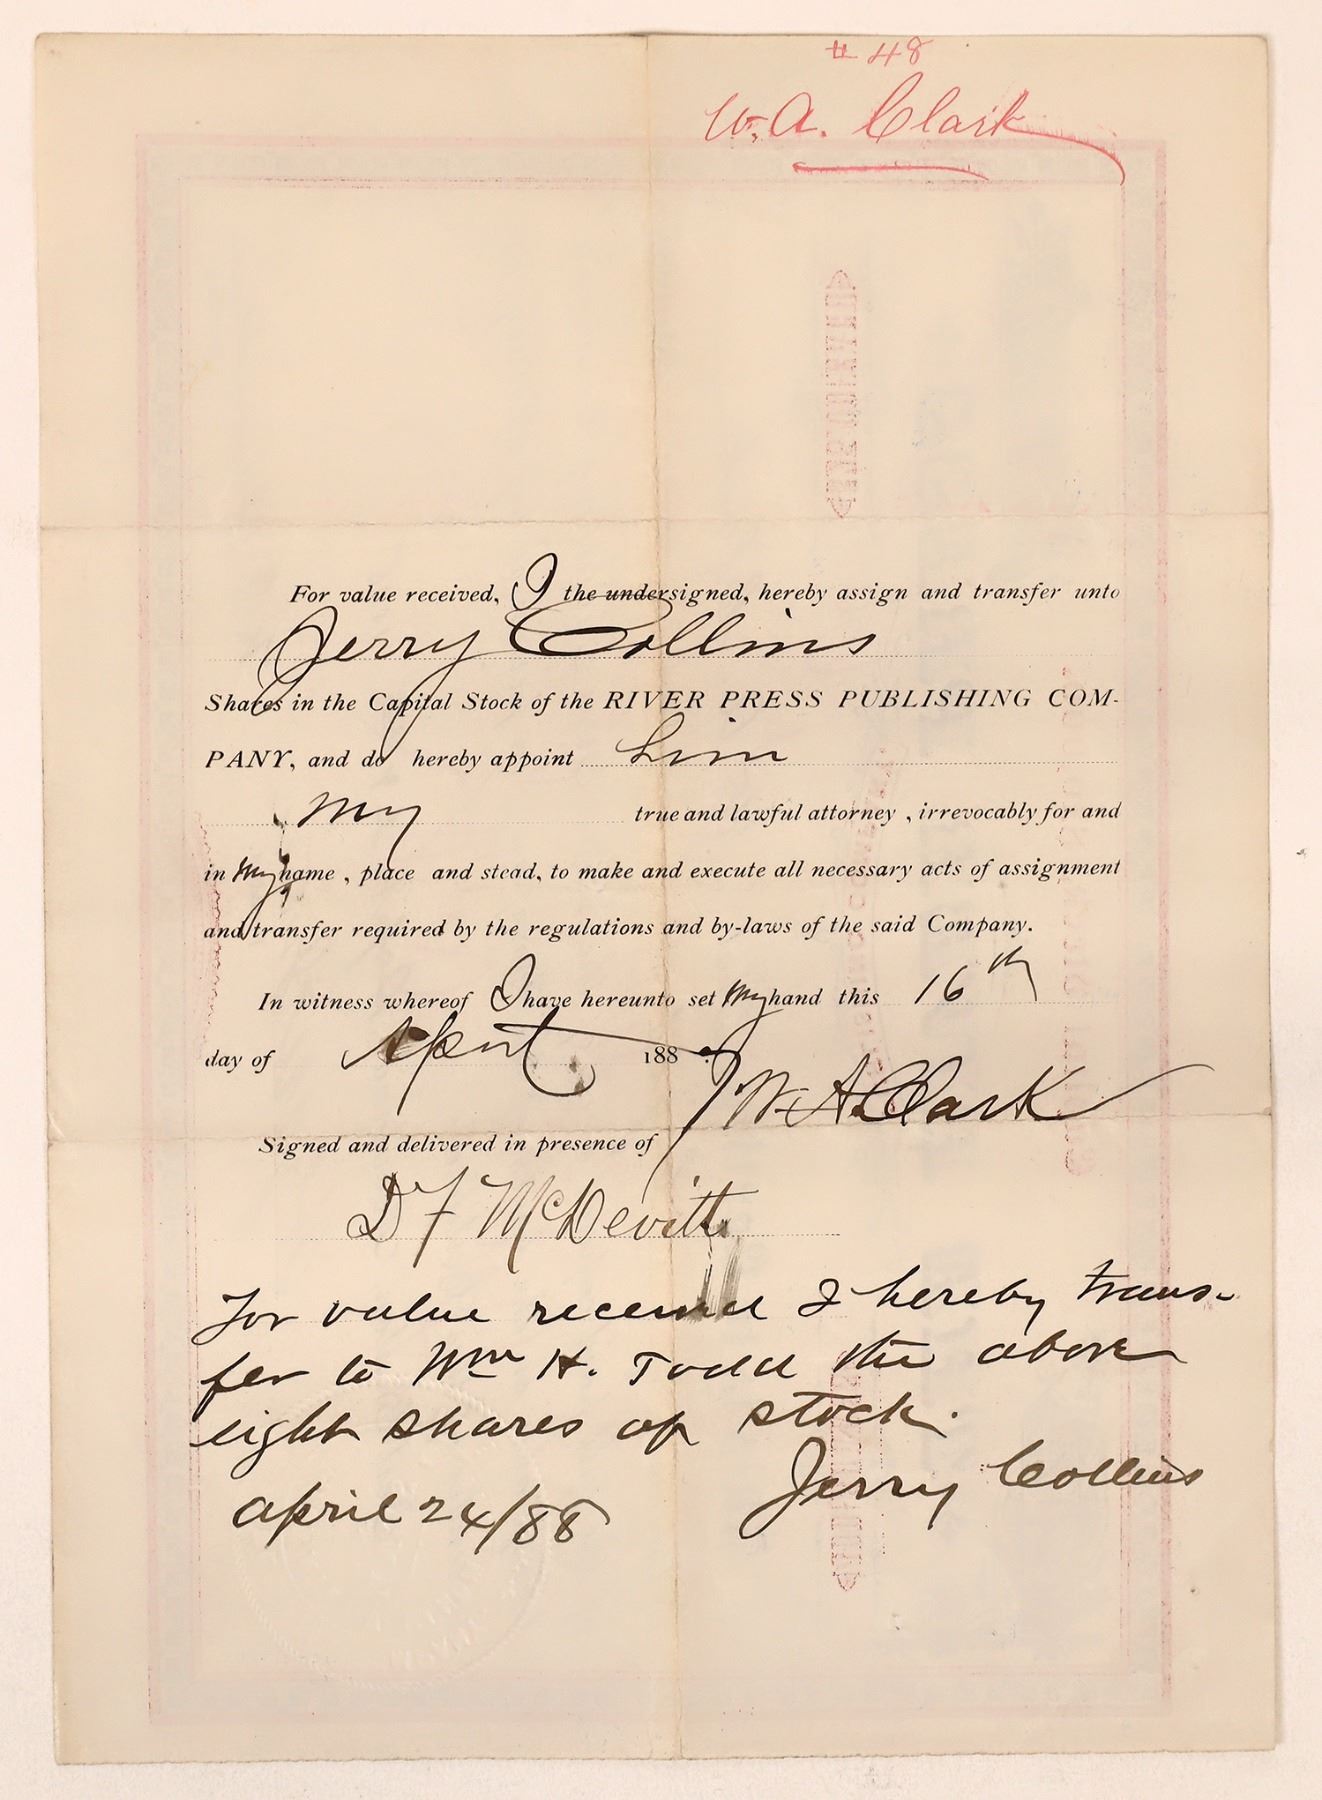 # 48
W. A. Clark
For value received, I the undersigned, hereby assign and transfer unto
Jerry Collins
Shares in the Capital Stock of the RIVER PRESS PUBLISHING COM-
PANY, and do hereby appoint him
my true and lawful attorney , irrevocably for and
in my name , place and stead, to make and execute all necessary acts of assignment
and transfer required by the regulations and by-laws of the said Company.
In witness whereof I have hereunto set my hand this 16th
day of April 188
W. A. Clark
Signed and delivered in presence of
D F McDevitt
For value received I hereby trans-
fer to Wm H. Todd the above
eight shares of stock.
Jerry Collins
april 24/88